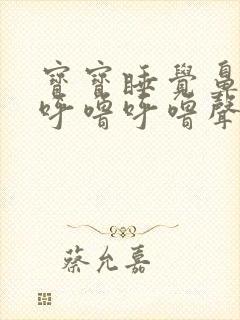 寶寶睡覺鼻
呼嚕呼嚕聲
蔡允嘉